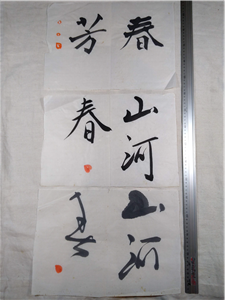 春芳
山河春
山河春